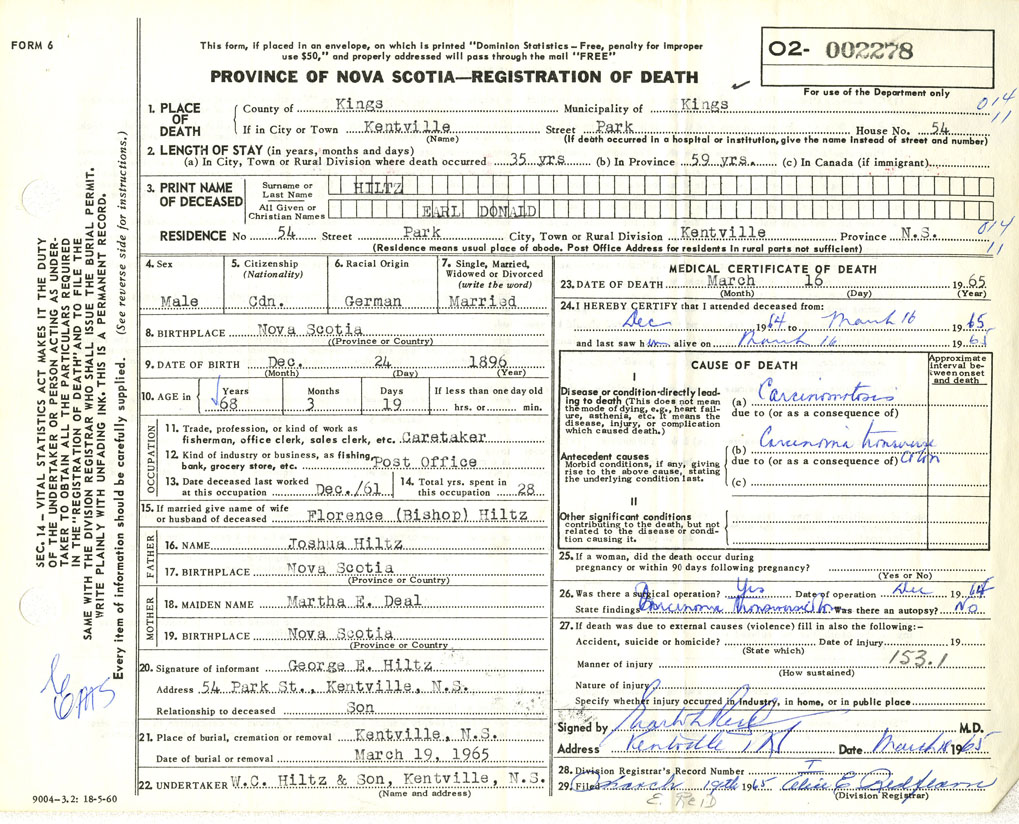 FORM 6
This form, if placed in an envelope, on which is printed "Dominion Statistics – Free, penalty for improper
use $50," and properly addressed will pass through the mail "FREE"
PROVINCE OF NOVA SCOTIA—REGISTRATION OF DEATH
O2- 002278
For use of the Department only
1. PLACE OF DEATH
County of Kings Municipality of Kings 014
If in City or Town Kentville Street Park House No. 54 11
(Name) (If death occurred in a hospital or institution, give the name instead of street and number)
2. LENGTH OF STAY (in years, months and days)
(a) In City, Town or Rural Division where death occurred 35 yrs (b) In Province 59 yrs. (c) In Canada (if immigrant)
3. PRINT NAME OF DECEASED
Surname or Last Name HILTZ
All Given or Christian Names EARL DONALD
RESIDENCE No 54 Street Park City, Town or Rural Division Kentville Province N.S. 014
(Residence means usual place of abode. Post Office Address for residents in rural parts not sufficient) 11
4. Sex
Male
5. Citizenship
(Nationality)
Cdn.
6. Racial Origin
German
7. Single, Married,
Widowed or Divorced
(write the word)
Married
8. BIRTHPLACE Nova Scotia
((Province or Country)
9. DATE OF BIRTH Dec. 24 1896
(Month) (Day) (Year)
10. AGE in
Years Months Days If less than one day old
68 3 19 hrs. or min.
OCCUPATION
11. Trade, profession, or kind of work as
fisherman, office clerk, sales clerk, etc. Caretaker
12. Kind of industry or business, as fishing,
bank, grocery store, etc. Post Office
13. Date deceased last worked
at this occupation Dec./61
14. Total yrs. spent in
this occupation 28
15. If married give name of wife
or husband of deceased Florence (Bishop) Hiltz
FATHER
16. NAME Joshua Hiltz
17. BIRTHPLACE Nova Scotia
(Province or Country)
MOTHER
18. MAIDEN NAME Martha E. Deal
19. BIRTHPLACE Nova Scotia
(Province or Country
20. Signature of informant George E. Hiltz
Address 54 Park St., Kentville, N.S.
Relationship to deceased Son
21. Place of burial, cremation or removal Kentville, N.S.
Date of burial or removal March 19, 1965
22. UNDERTAKER W.C. Hiltz & Son, Kentville, N.S.
(Name and address)
MEDICAL CERTIFICATE OF DEATH
23. DATE OF DEATH March 16 1965
(Month) (Day) (Year)
24. I HEREBY CERTIFY that I attended deceased from:
Dec 1964 to March 16 1965
and last saw him alive on March 16 1965
CAUSE OF DEATH
Approximate
interval be-
tween onset
and death
I
Disease or condition directly lead-
ing to death (This does not mean
the mode of dying, e.g., heart fail-
ure, asthenia, etc. It means the
disease, injury, or complication
which caused death.)
(a) Carcinomatosis
due to (or as a consequence of)
Antecedent causes
Morbid conditions, if any, giving
rise to the above cause, stating
the underlying condition last.
(b) Carcinoma transverse
due to (or as a consequence of) Colon
(c)
II
Other significant conditions
contributing to the death, but not
related to the disease or condi-
tion causing it.
25. If a woman, did the death occur during
pregnancy or within 90 days following pregnancy?
(Yes or No)
26. Was there a surgical operation? Yes Date of operation Dec 1964
State findings Carcinoma transverse Colon Was there an autopsy? No
27. If death was due to external causes (violence) fill in also the following:–
Accident, suicide or homicide? Date of injury 19
(State which)
153.1
Manner of injury
(How sustained)
Nature of injury
Specify whether injury occurred in industry, in home, or in public place
Signed by M.D.
Address Kentville NS Date March 18 1965
28. Division Registrar's Record Number
29. Filed March 19th 1965
(Division Registrar)
E. REID
SEC. 14 – VITAL STATISTICS ACT MAKES IT THE DUTY
OF THE UNDERTAKER OR PERSON ACTING AS UNDER-
TAKER TO OBTAIN ALL THE PARTICULARS REQUIRED
IN THE "REGISTRATION OF DEATH" AND TO FILE THE
SAME WITH THE DIVISION REGISTRAR WHO SHALL ISSUE THE BURIAL PERMIT.
WRITE PLAINLY WITH UNFADING INK. THIS IS A PERMANENT RECORD.
Every item of information should be carefully supplied. (See reverse side for instructions.)
9004–3.2: 18-5-60